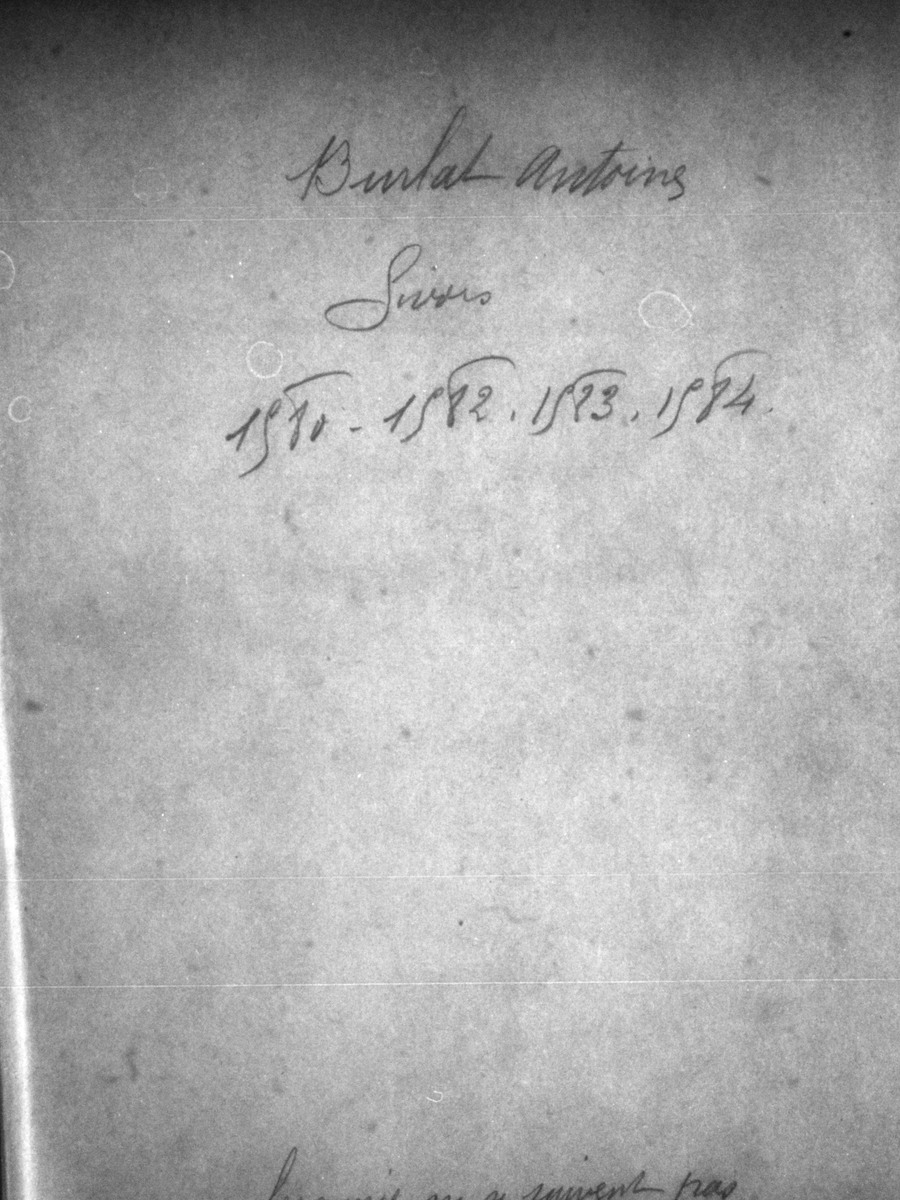 Burlat Antoine
Givors
1580 - 1582. 1583. 1584.
suivent pas